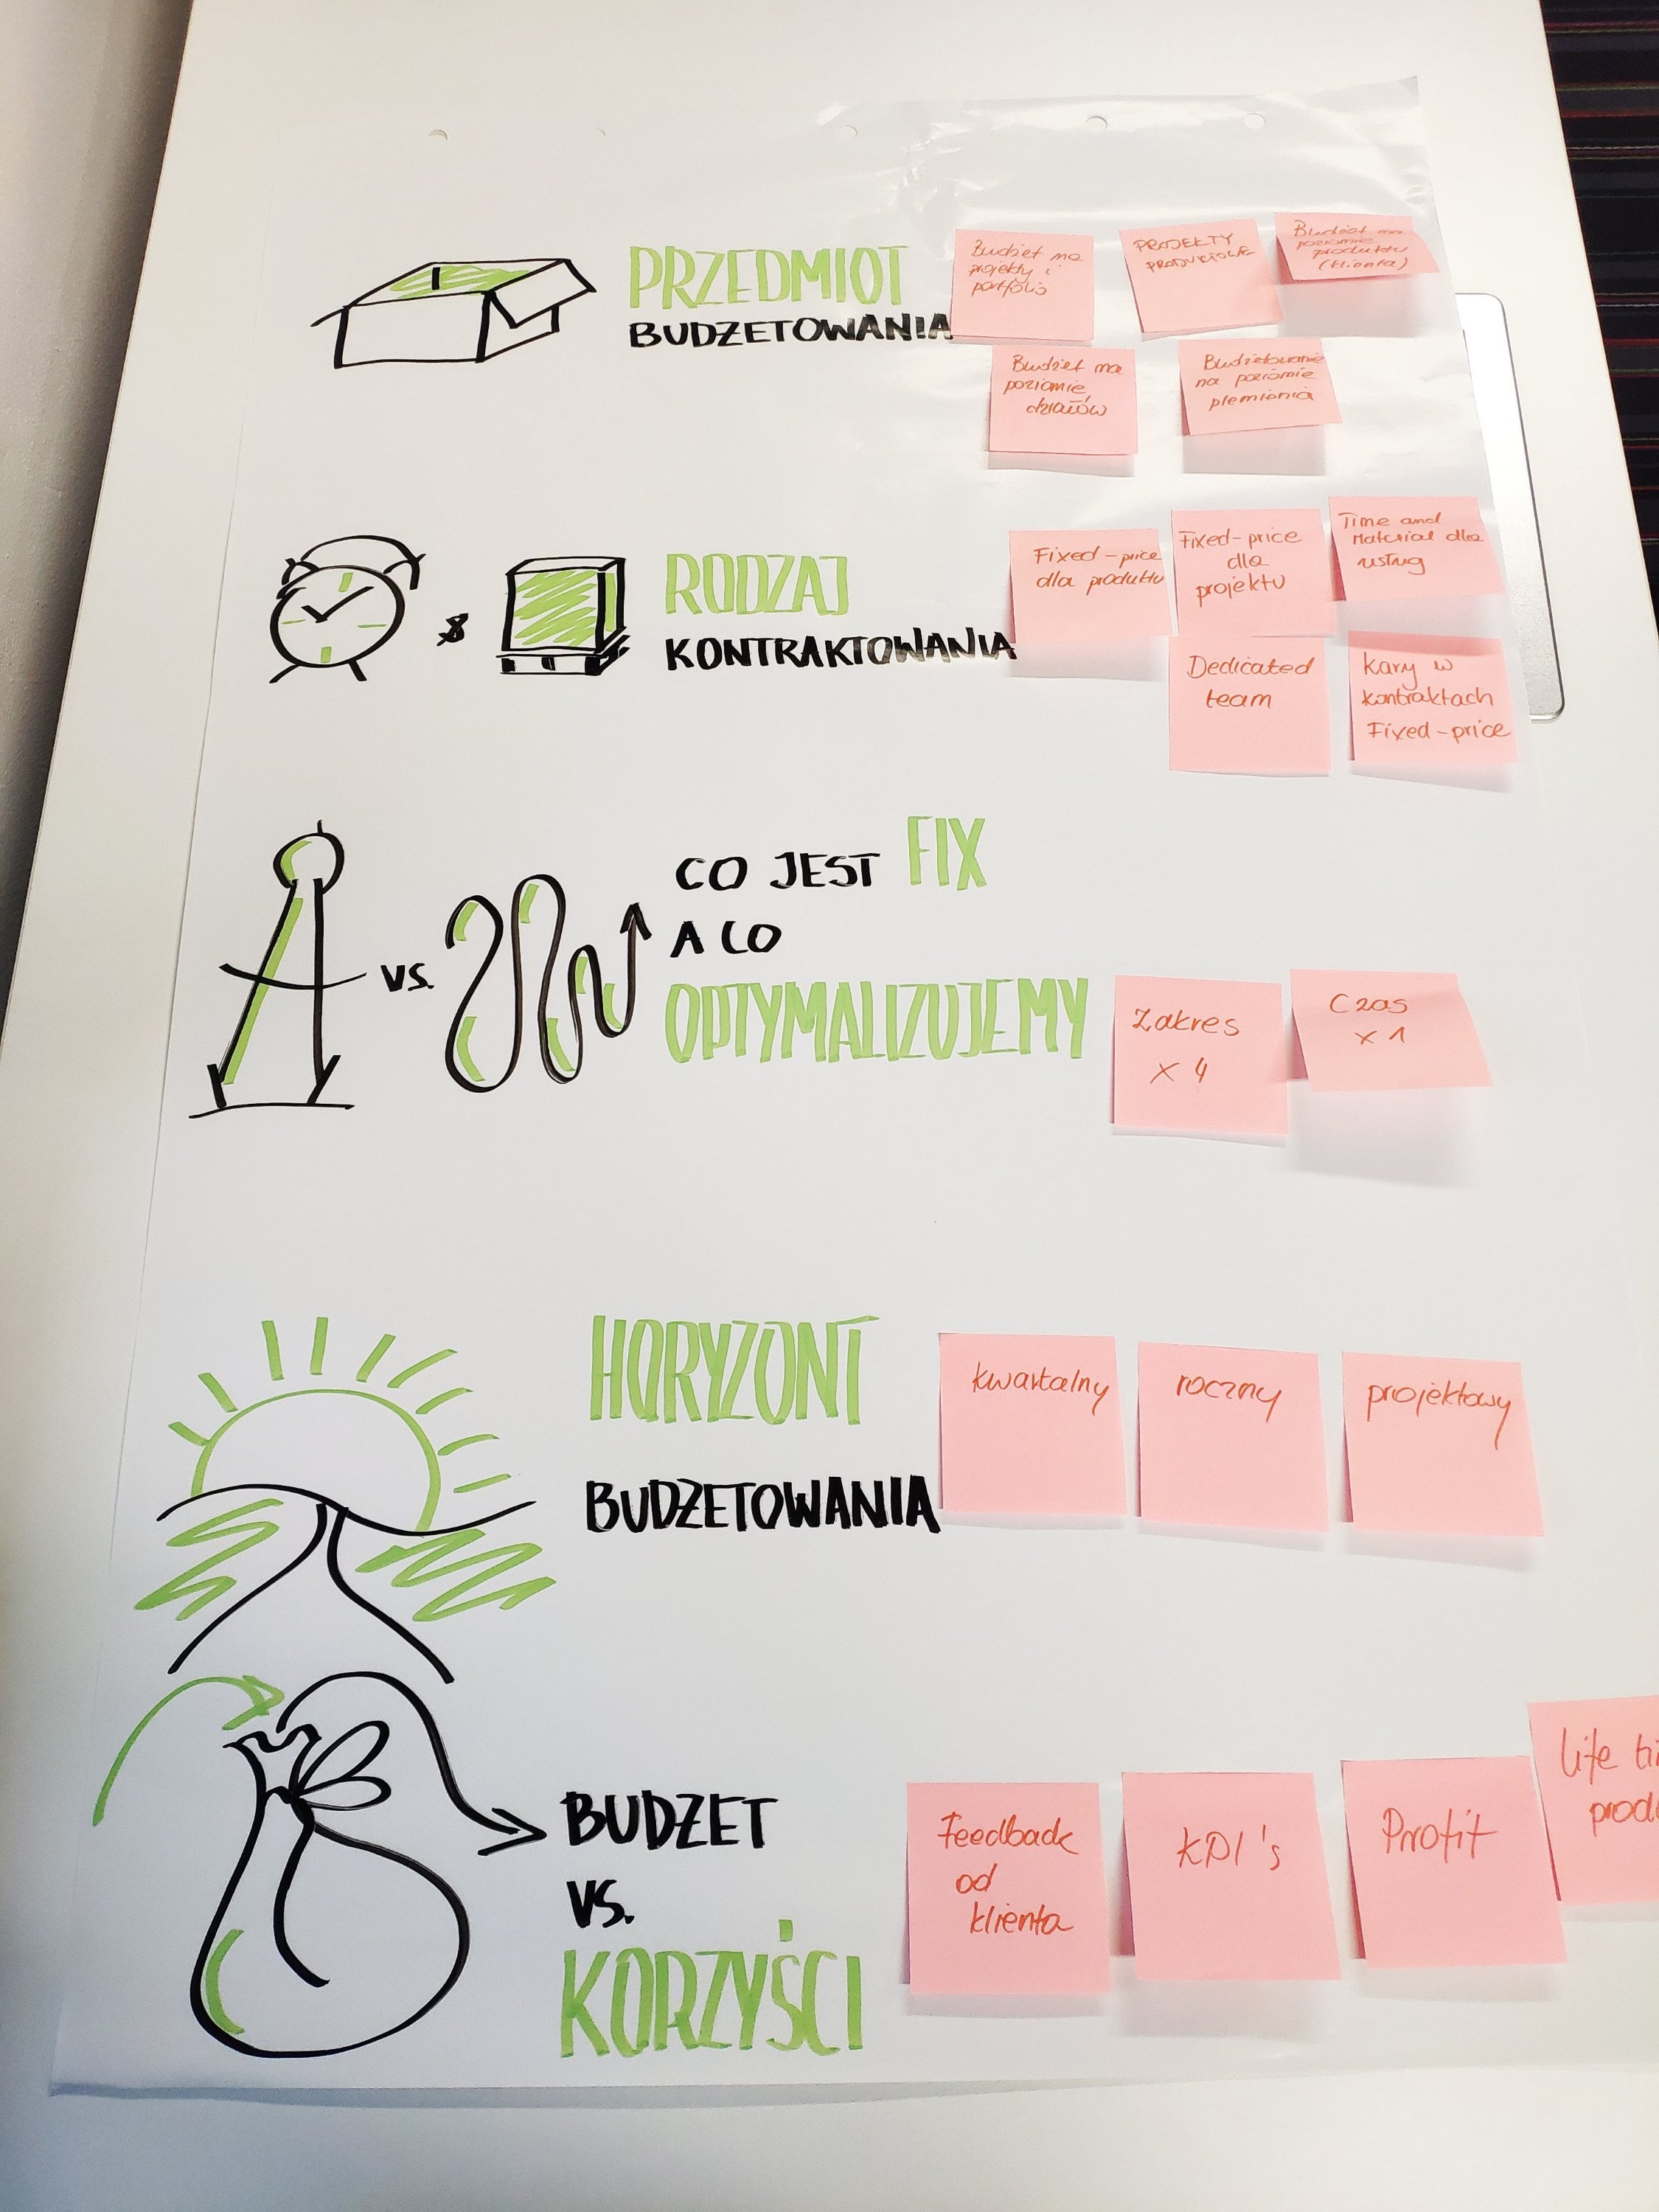 PRZEDMIOT
BUDŻETOWANIA
Budżet na
projekty i
portfolio
PROJEKTY
PRODUKTOWE
Budżet na
poziomie
produktu
(klienta)
Budżet na
poziomie
działów
Budżetowanie
na poziomie
plemienia
RODZAJ
KONTRAKTOWANIA
Fixed-price
dla produktu
Fixed-price
dla
projektu
Time and
Material dla
usług
Dedicated
team
Kary w
kontraktach
Fixed-price
VS.
CO JEST FIX
A CO
OPTYMALIZUJEMY
Zakres
x 4
Czas
x 1
HORYZONT
BUDŻETOWANIA
kwartalny
roczny
projektowy
BUDŻET
VS.
KORZYŚCI
Feedback
od
klienta
KPI's
Profit
Life